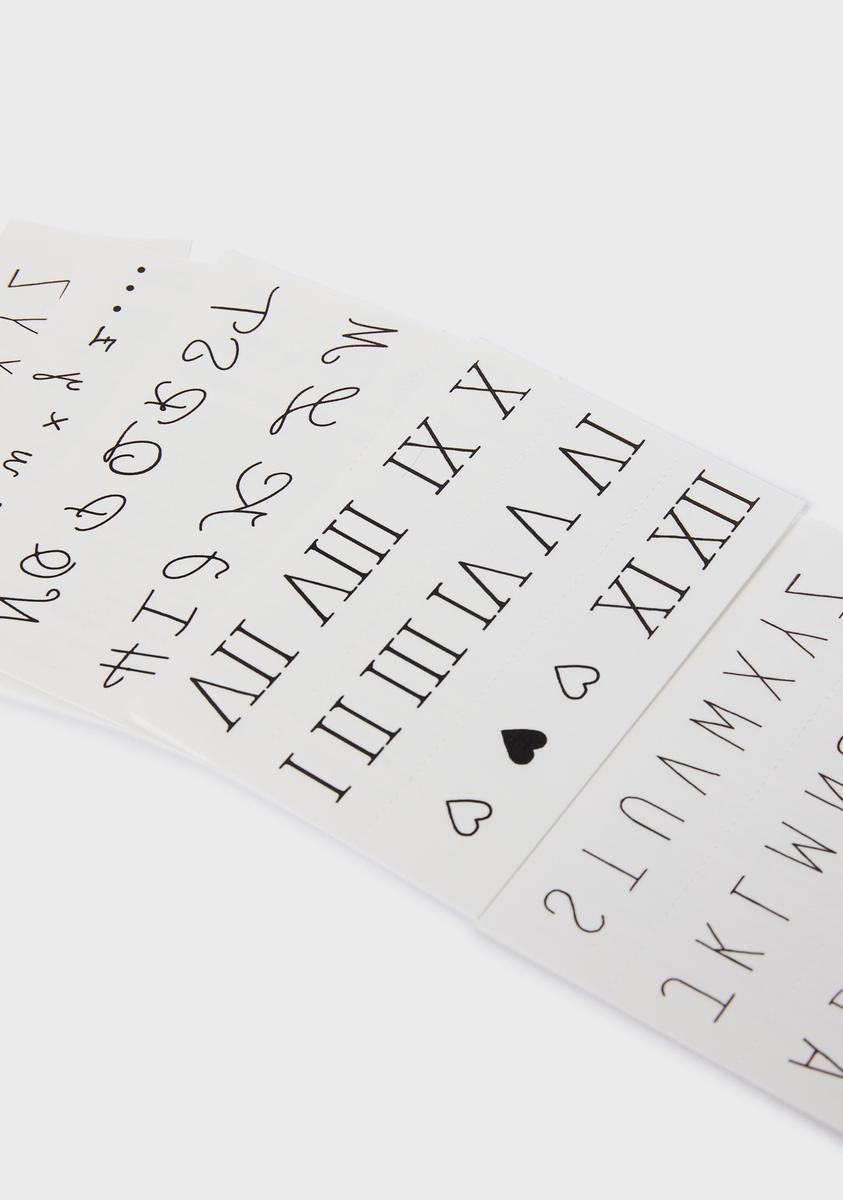 ♡ ♥ ♡ XI XII
I II III IV V VI
VII VIII IX X
J K L M N
S T U V W X Y Z
H I J K L M
N O P Q R S T
w x y z